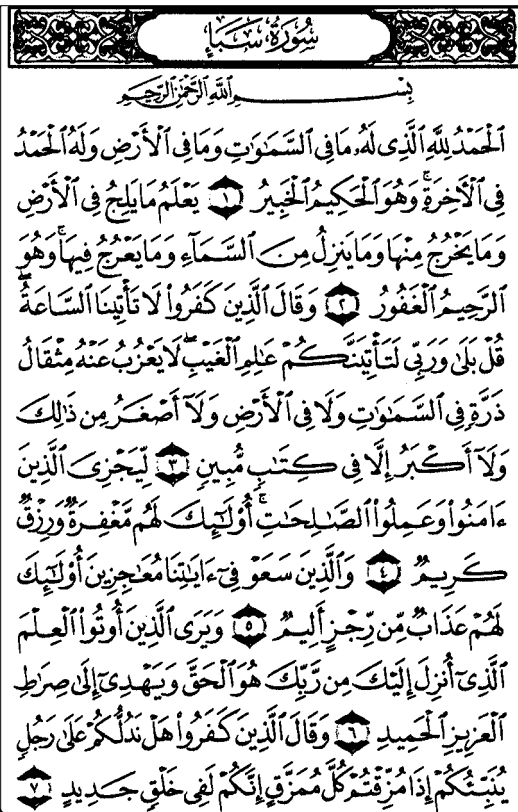 سُورَةُ سَبَإٍ
بِسْمِ ٱللَّهِ ٱلرَّحْمَٰنِ ٱلرَّحِيمِ
ٱلْحَمْدُ لِلَّهِ ٱلَّذِى لَهُۥ مَا فِى ٱلسَّمَٰوَٰتِ وَمَا فِى ٱلْأَرْضِ وَلَهُ ٱلْحَمْدُ
فِى ٱلْأَخِرَةِ ۚ وَهُوَ ٱلْحَكِيمُ ٱلْخَبِيرُ ١ يَعْلَمُ مَا يَلِجُ فِى ٱلْأَرْضِ
وَمَا يَخْرُجُ مِنْهَا وَمَا يَنزِلُ مِنَ ٱلسَّمَآءِ وَمَا يَعْرُجُ فِيهَا ۚ وَهُوَ
ٱلرَّحِيمُ ٱلْغَفُورُ ٢ وَقَالَ ٱلَّذِينَ كَفَرُوا۟ لَا تَأْتِينَا ٱلسَّاعَةُ ۖ
قُلْ بَلَىٰ وَرَبِّى لَتَأْتِيَنَّكُمْ عَٰلِمِ ٱلْغَيْبِ ۖ لَا يَعْزُبُ عَنْهُ مِثْقَالُ
ذَرَّةٍ فِى ٱلسَّمَٰوَٰتِ وَلَا فِى ٱلْأَرْضِ وَلَآ أَصْغَرُ مِن ذَٰلِكَ
وَلَآ أَكْبَرُ إِلَّا فِى كِتَٰبٍ مُّبِينٍ ٣ لِّيَجْزِىَ ٱلَّذِينَ
ءَامَنُوا۟ وَعَمِلُوا۟ ٱلصَّٰلِحَٰتِ ۚ أُو۟لَٰٓئِكَ لَهُم مَّغْفِرَةٌ وَرِزْقٌ
كَرِيمٌ ٤ وَٱلَّذِينَ سَعَوْ فِىٓ ءَايَٰتِنَا مُعَٰجِزِينَ أُو۟لَٰٓئِكَ
لَهُمْ عَذَابٌ مِّن رِّجْزٍ أَلِيمٌ ٥ وَيَرَى ٱلَّذِينَ أُوتُوا۟ ٱلْعِلْمَ
ٱلَّذِىٓ أُنزِلَ إِلَيْكَ مِن رَّبِّكَ هُوَ ٱلْحَقَّ وَيَهْدِىٓ إِلَىٰ صِرَٰطِ
ٱلْعَزِيزِ ٱلْحَمِيدِ ٦ وَقَالَ ٱلَّذِينَ كَفَرُوا۟ هَلْ نَدُلُّكُمْ عَلَىٰ رَجُلٍ
يُنَبِّئُكُمْ إِذَا مُزِّقْتُمْ كُلَّ مُمَزَّقٍ إِنَّكُمْ لَفِى خَلْقٍ جَدِيدٍ ٧